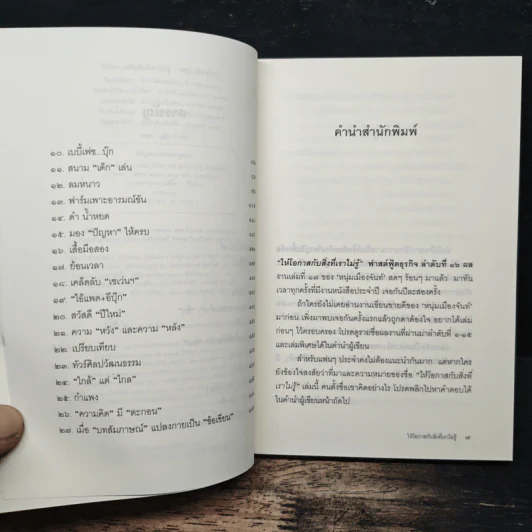 ๑๐. เบบี้เฟซ...บุ๊ก
๑๑. สนาม “เด็ก” เล่น
๑๒. ลมหนาว
๑๓. ฟาร์มเพาะอารมณ์ขัน
๑๔. ดำ น้ำหยด
๑๕. มอง “ปัญหา” ให้ครบ
๑๖. เสื้อมือสอง
๑๗. ย้อนเวลา
๑๘. เคล็ดลับ “เซเว่นฯ”
๑๙. “ไอ้แพด+อีบุ๊ก”
๒๐. สวัสดี “ปีใหม่”
๒๑. ความ “หวัง” และความ “หลัง”
๒๒. เปรียบเทียบ
๒๓. ทัวร์ศิลปวัฒนธรรม
๒๔. “ใกล้” แต่ “ไกล”
๒๕. กำแพง
๒๖. “ความคิด” มี “ตะกอน”
๒๗. เมื่อ “บทสัมภาษณ์” แปลงกายเป็น “ข้อเขียน”
คำนำสำนักพิมพ์
“ให้โอกาสกับสิ่งที่เราไม่รู้” ฟาสต์ฟู้ดธุรกิจ ลำดับที่ ๑๖ ผล
งานเล่มที่ ๑๘ ของ ‘หนุ่มเมืองจันท์’ สดๆ ร้อนๆ มาแล้ว มาทัน
เวลาทุกครั้งที่มีงานหนังสือประจำปี เจอกันปีละสองครั้ง
ถ้าใครยังไม่เคยอ่านงานเขียนขายดีของ ‘หนุ่มเมืองจันท์’
มาก่อน เพิ่งมาพบเจอกันครั้งแรกแล้วถูกตาต้องใจ อยากได้เล่ม
ก่อนๆ ไว้ครอบครอง โปรดดูรายชื่อผลงานที่ผ่านมาลำดับที่ ๑-๑๕
และเล่มพิเศษได้ในคำนำผู้เขียน
สำหรับแฟนๆ ประจำคงไม่ต้องแนะนำกันมาก แต่หากใคร
ยังข้องใจสงสัยว่าที่มาและความหมายของชื่อ “ให้โอกาสกับสิ่งที่
เราไม่รู้” เล่มนี้ คนตั้งชื่อเขาคิดอย่างไร โปรดพลิกไปหาคำตอบได้
ในคำนำผู้เขียนหน้าถัดไป
ให้โอกาสกับสิ่งที่เราไม่รู้ ๗